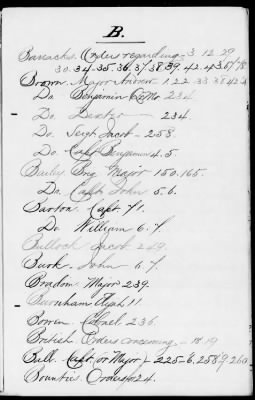 B.
Barracks. Orders regarding - 3. 12. 29
30. 34. 35. 36. 37. 38. 39. 42. 43. 67. 78
Brown. Major Andrew 1. 22. 33. 38. 42.
Do. Benjamin 234.
Do. Dexter 234.
Do. Jacob - 258.
Do. Capt Benjamin 4. 5.
Brig Major 150. 165.
Do. Capt John 5. 6.
Barton. Capt. 71.
Do William 6. 7.
Bullock Jacob 249.
Burk. John 6. 7.
Major 239.
Burnham 11.
Bowen. Colonel 236.
British Orders concerning - 18. 19
Bell. Capt or Major - 225-6. 258-9. 260
Bounties. Orders for 24.